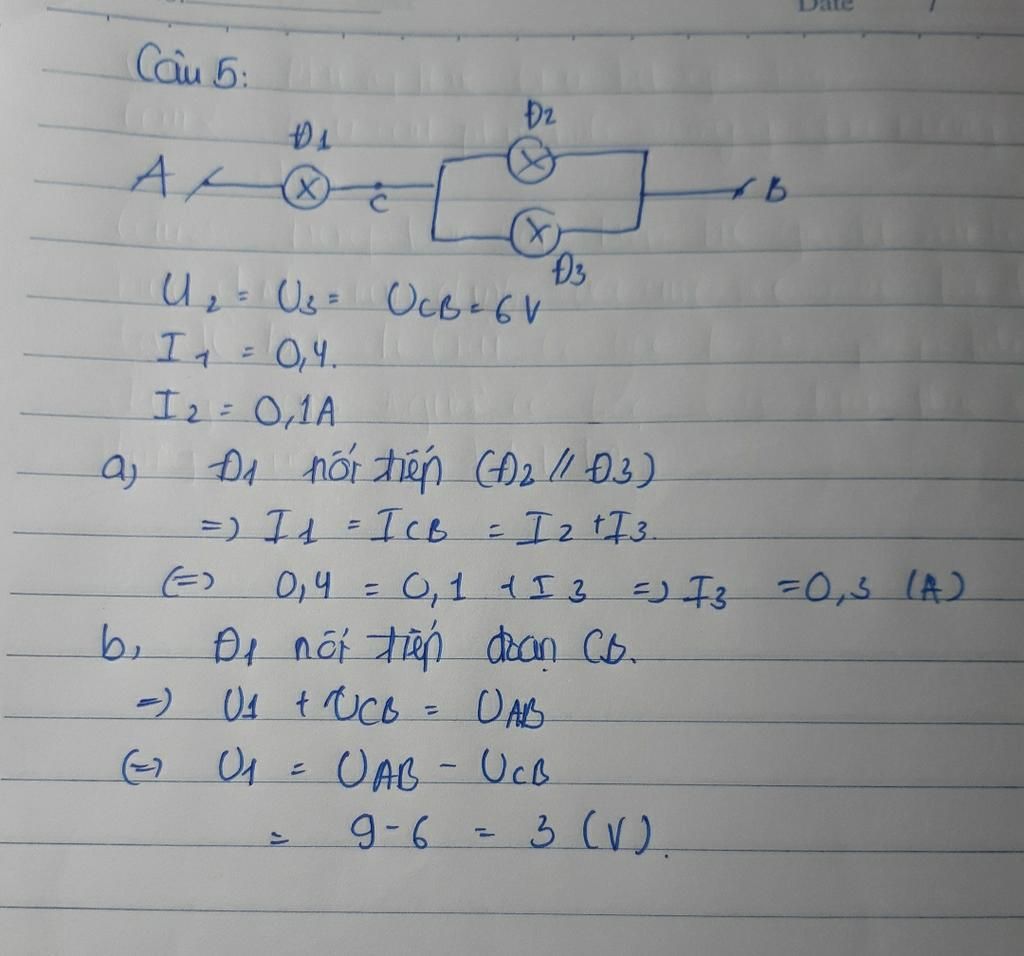 Date /
Câu 5:
Đ2
Đ1
A
C
B
Đ3
U2 = U3 = UCB = 6V
I1 = 0,4.
I2 = 0,1A
a) Đ1 nối tiếp (Đ2 // Đ3)
=) I1 = ICB = I2 + I3.
(=) 0,4 = 0,1 + I3 =) I3 = 0,3 (A)
b, Đ1 nối tiếp đoạn CB.
=) U1 + UCB = UAB
(=) U1 = UAB - UCB
= 9-6 = 3 (V).